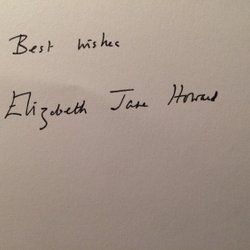 Best wishes
Elizabeth Jane Howard